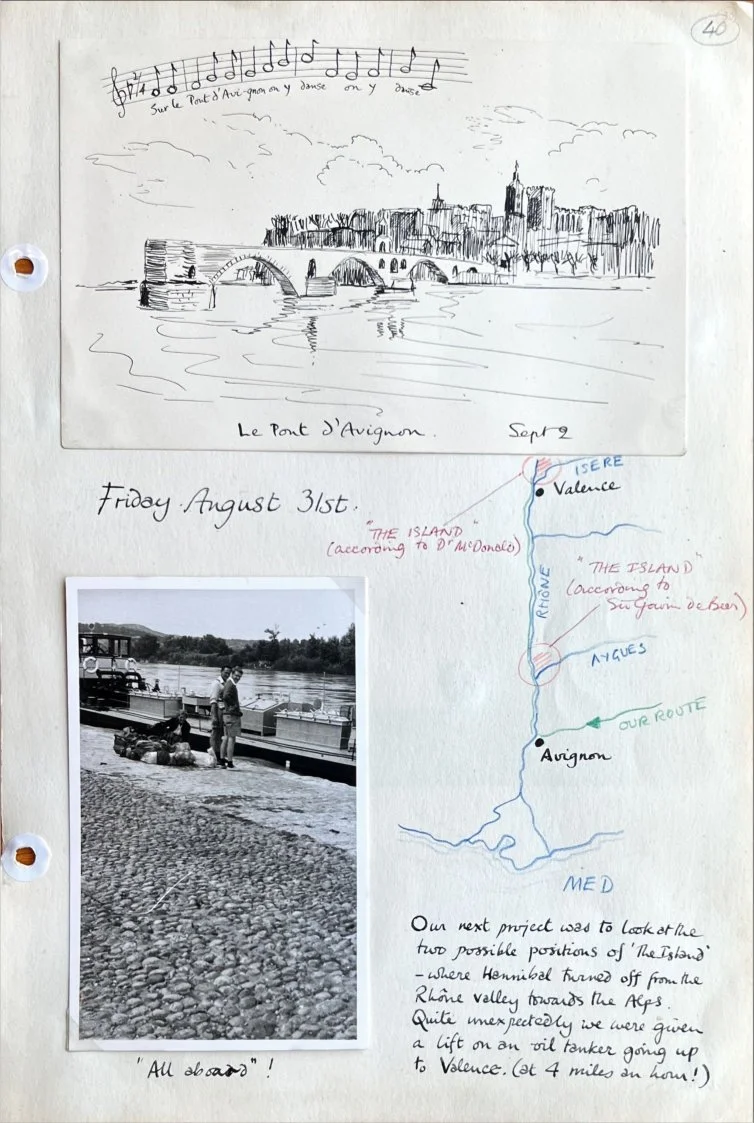 40
Sur le Pont d'Avi-gnon on y danse on y danse
Le Pont d'Avignon. Sept 2
Friday August 31st.
ISERE
Valence
"THE ISLAND"
(according to Dr McDonald)
RHÔNE
"THE ISLAND"
(according to
Sir Gavin de Beer)
AYGUES
OUR ROUTE
Avignon
MED
Our next project was to look at the
two possible positions of 'The Island'
- where Hannibal turned off from the
Rhône valley towards the Alps.
Quite unexpectedly we were given
a lift on an oil tanker going up
to Valence. (at 4 miles an hour!)
"All aboard"!